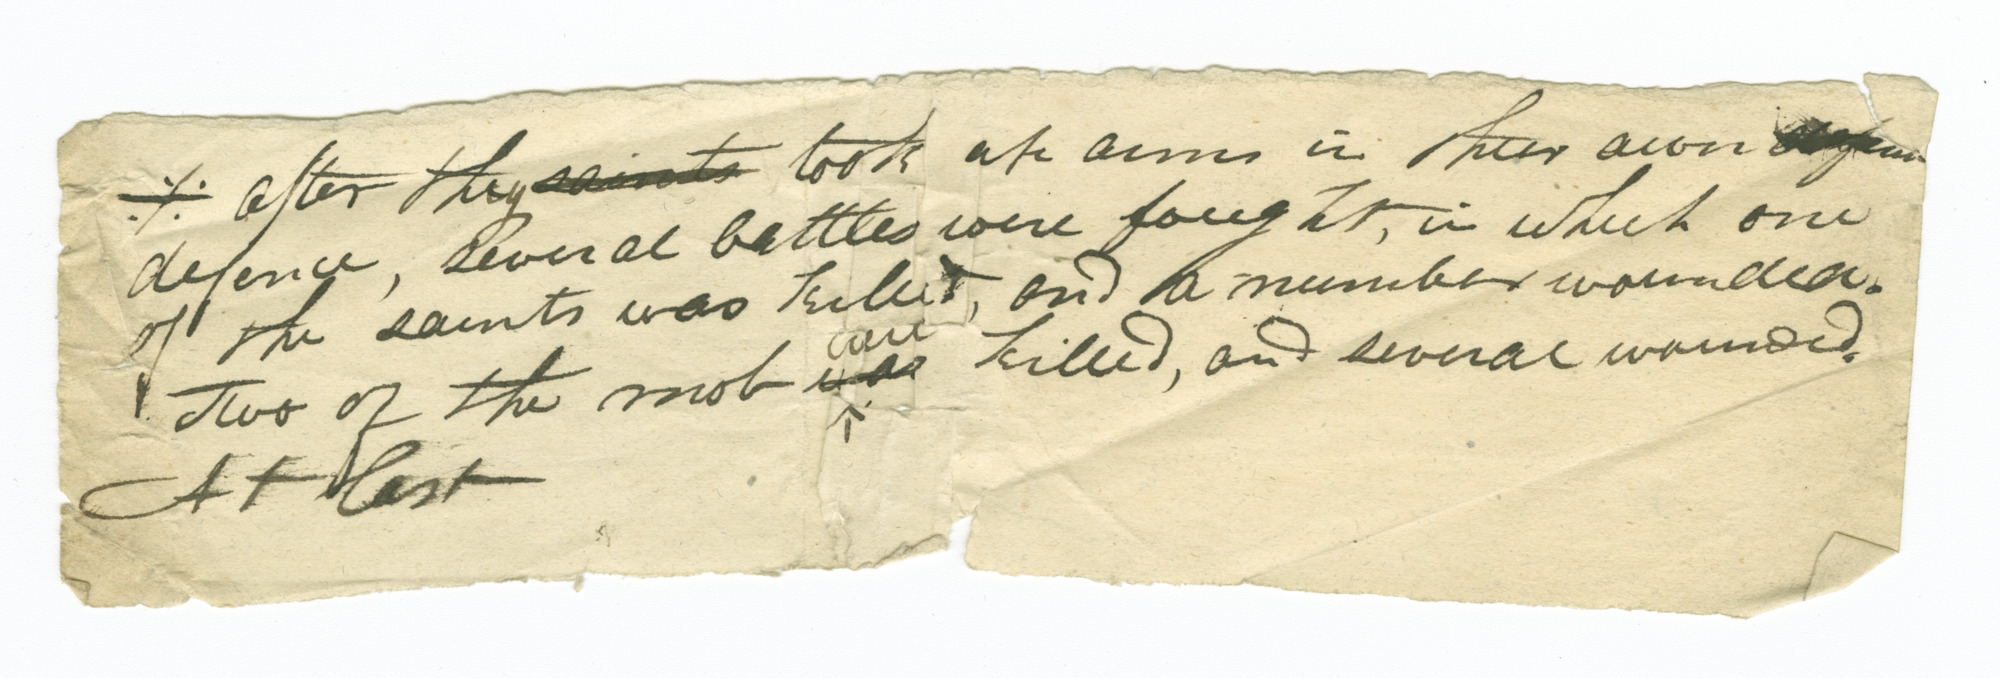 ·/· after they saints took up arms in their own
defence, several battles were fought, in which one
of the saints was killed, and a number wounded.
Two of the mob was were killed, and several wounded.
At last